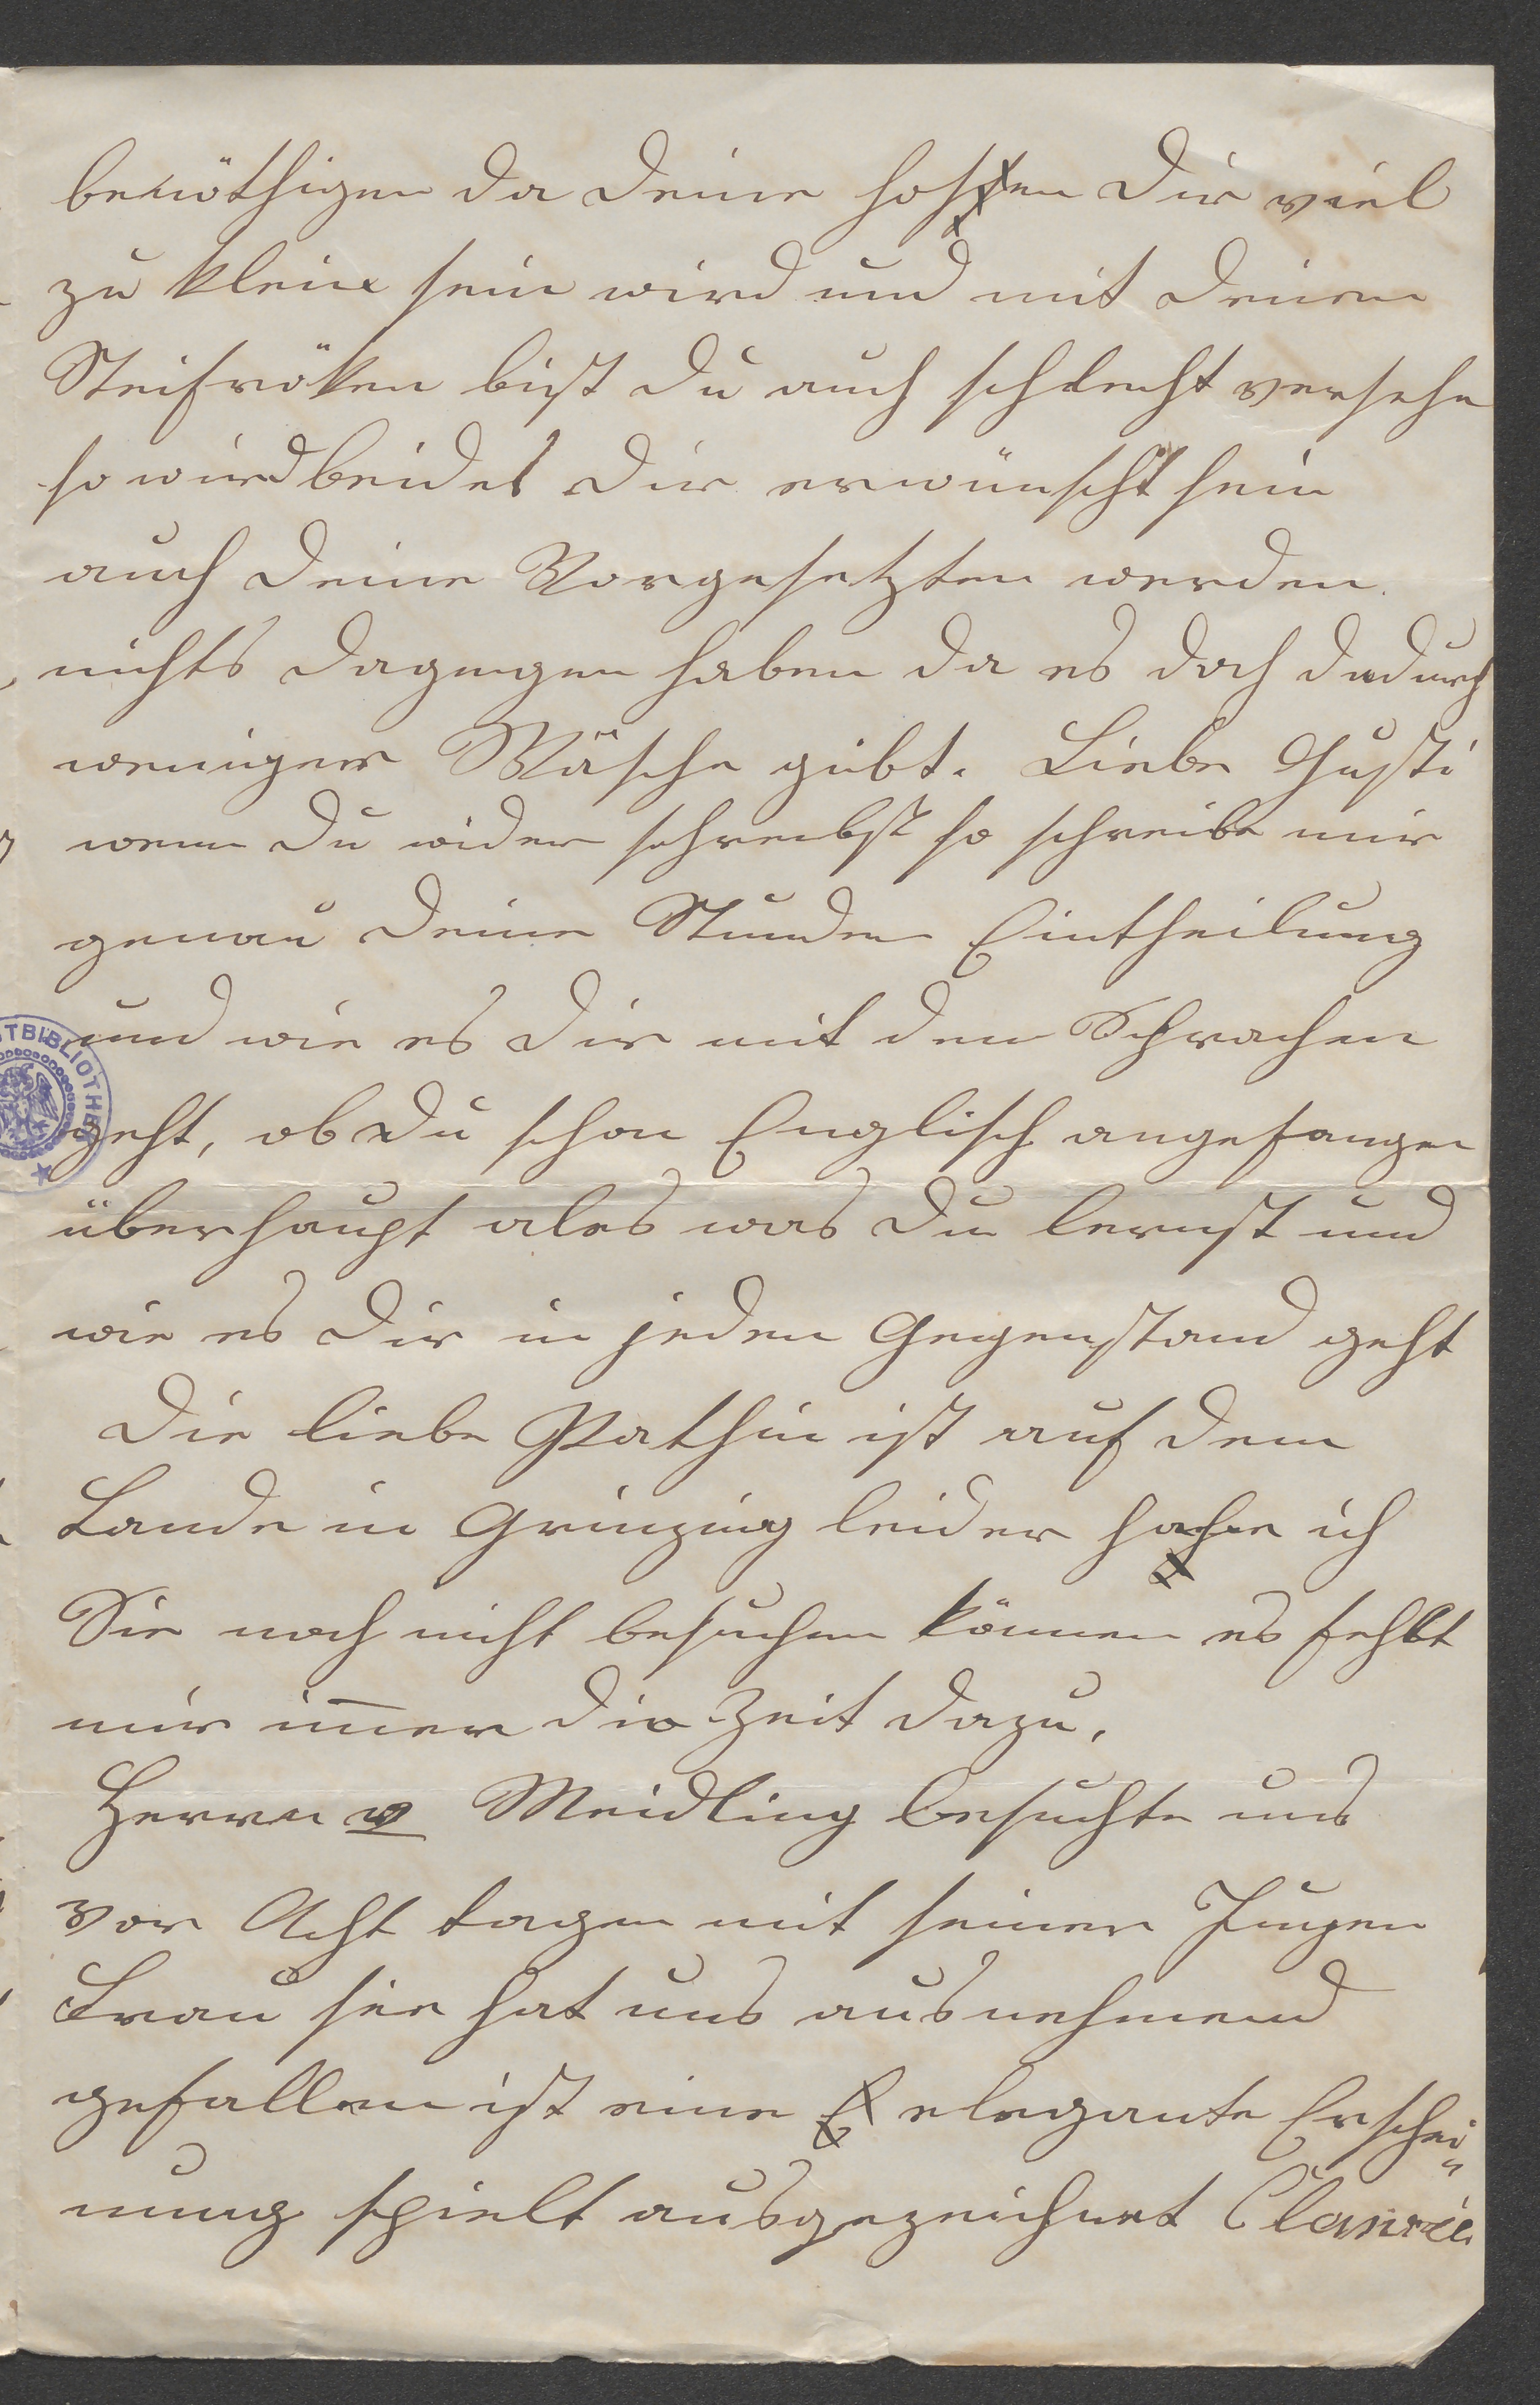 benöthigen da Deine hosen Dir viel
zu klein sein wird und mit Deinen
Steifröken bist Du auch schlecht versehn
so wird beides Dir erwünscht sein
auch Deine Vorgesetzten werden
nichts dagegen haben da es doch dadurch
weniger Wäsche gibt. Liebe Gusti
wenn Du wider schreibst so schreibe mir
genau Deine Stunden Eintheilung
und wie es Dir mit den Sprachen
geht, ob Du schon Englisch angefangen
überhaupt ales was Du lernst und
wie es Dir in jeden Gegenstand geht
Die liebe Pathin ist auf dem
Lande in Grinzing leider habe ich
Sie noch nicht besuchen können es fehlt
mir im̅er die Zeit dazu.
Herrn v Meidling besuchte uns
vor Acht tagen mit seiner Jungen
Frau sie hat uns ausnehmend
gefallen ist eine elegante Erschei„
nung spielt ausgezeichnet Clavier
TBIBLIOTHEK